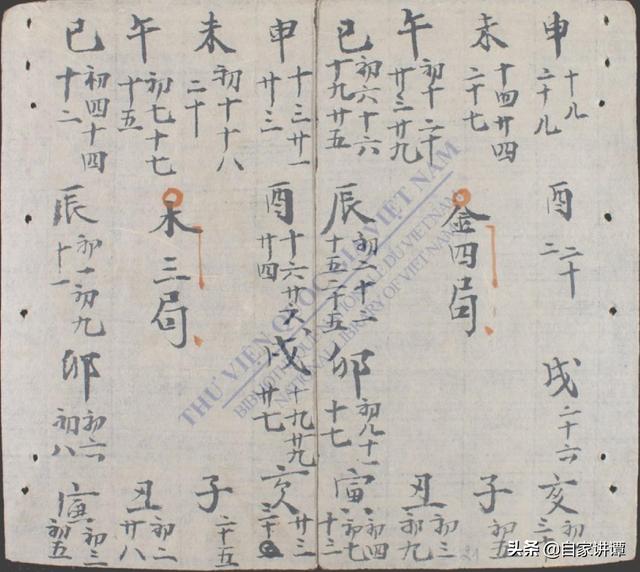 申
十八
二十八
未
十四廿四
二十七
午
初十二十
廿三廿九
巳
初六十六
十九廿五
酉
二十
二
金四局
辰
初二十二
十五二十五
戌
二十六
卯
十七
亥
三十
子
初五
丑
初三
初九
寅
初四
初七
十三
申
十三廿一
廿三
未
初十十八
二十
午
初七十七
十五
巳
初四十四
十二
酉
廿四
木三局
辰
初一初九
十一
戌
十九廿九
廿七
卯
初六
初八
亥
廿三
三十
子
二十五
丑
初二
廿八
寅
初三
初五
THƯ VIỆN QUỐC GIA VIỆT NAM
BIBLIOTHÈQUE NATIONALE DU VIETNAM
NATIONAL LIBRARY OF VIETNAM
头条 @自家讲谭